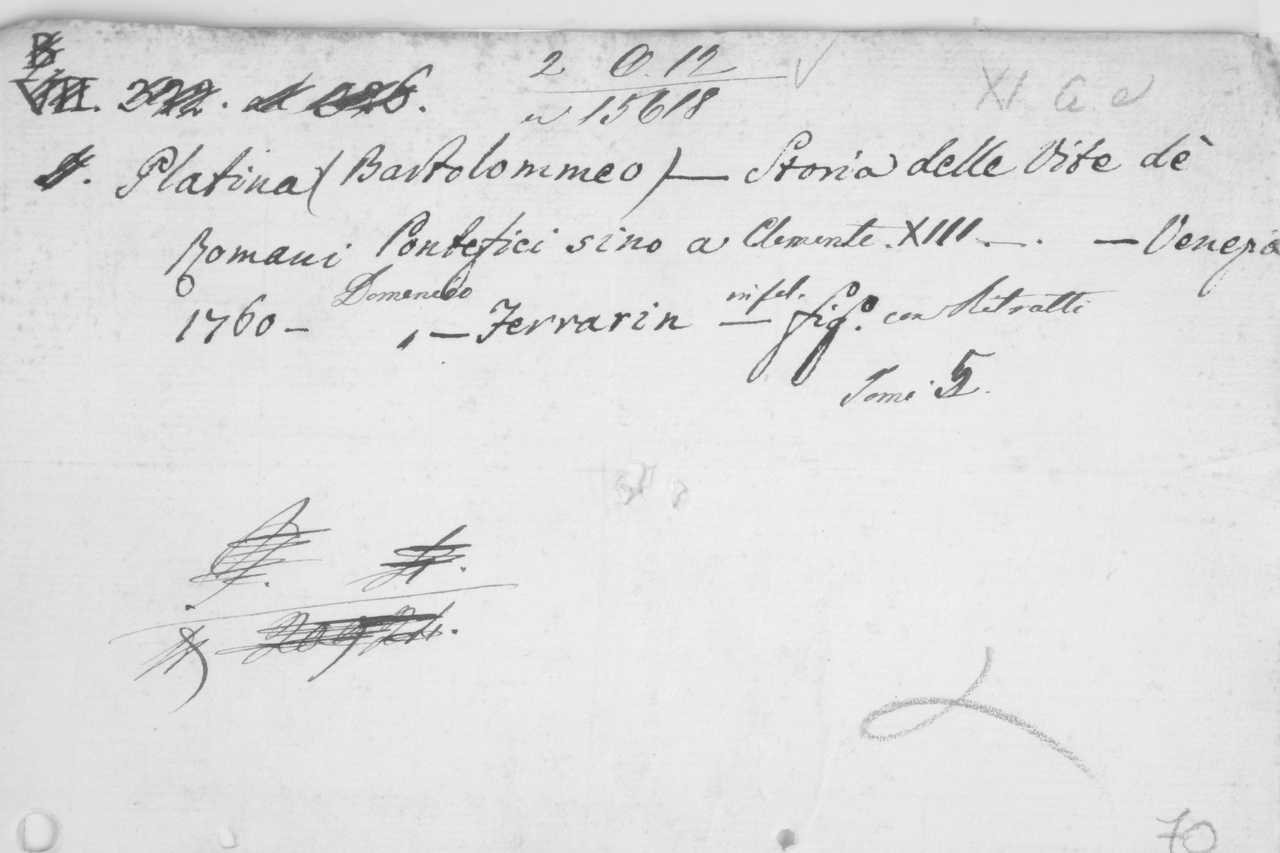 2 O. 12
n 15618
Platina (Bartolommeo) — Storia delle Vite dè
Romani Pontefici sino a Clemente XIII. — Venezia
1760 — Domenico — Ferrarin — in fol. — fig.º con Ritratti
Tomi 5.
70